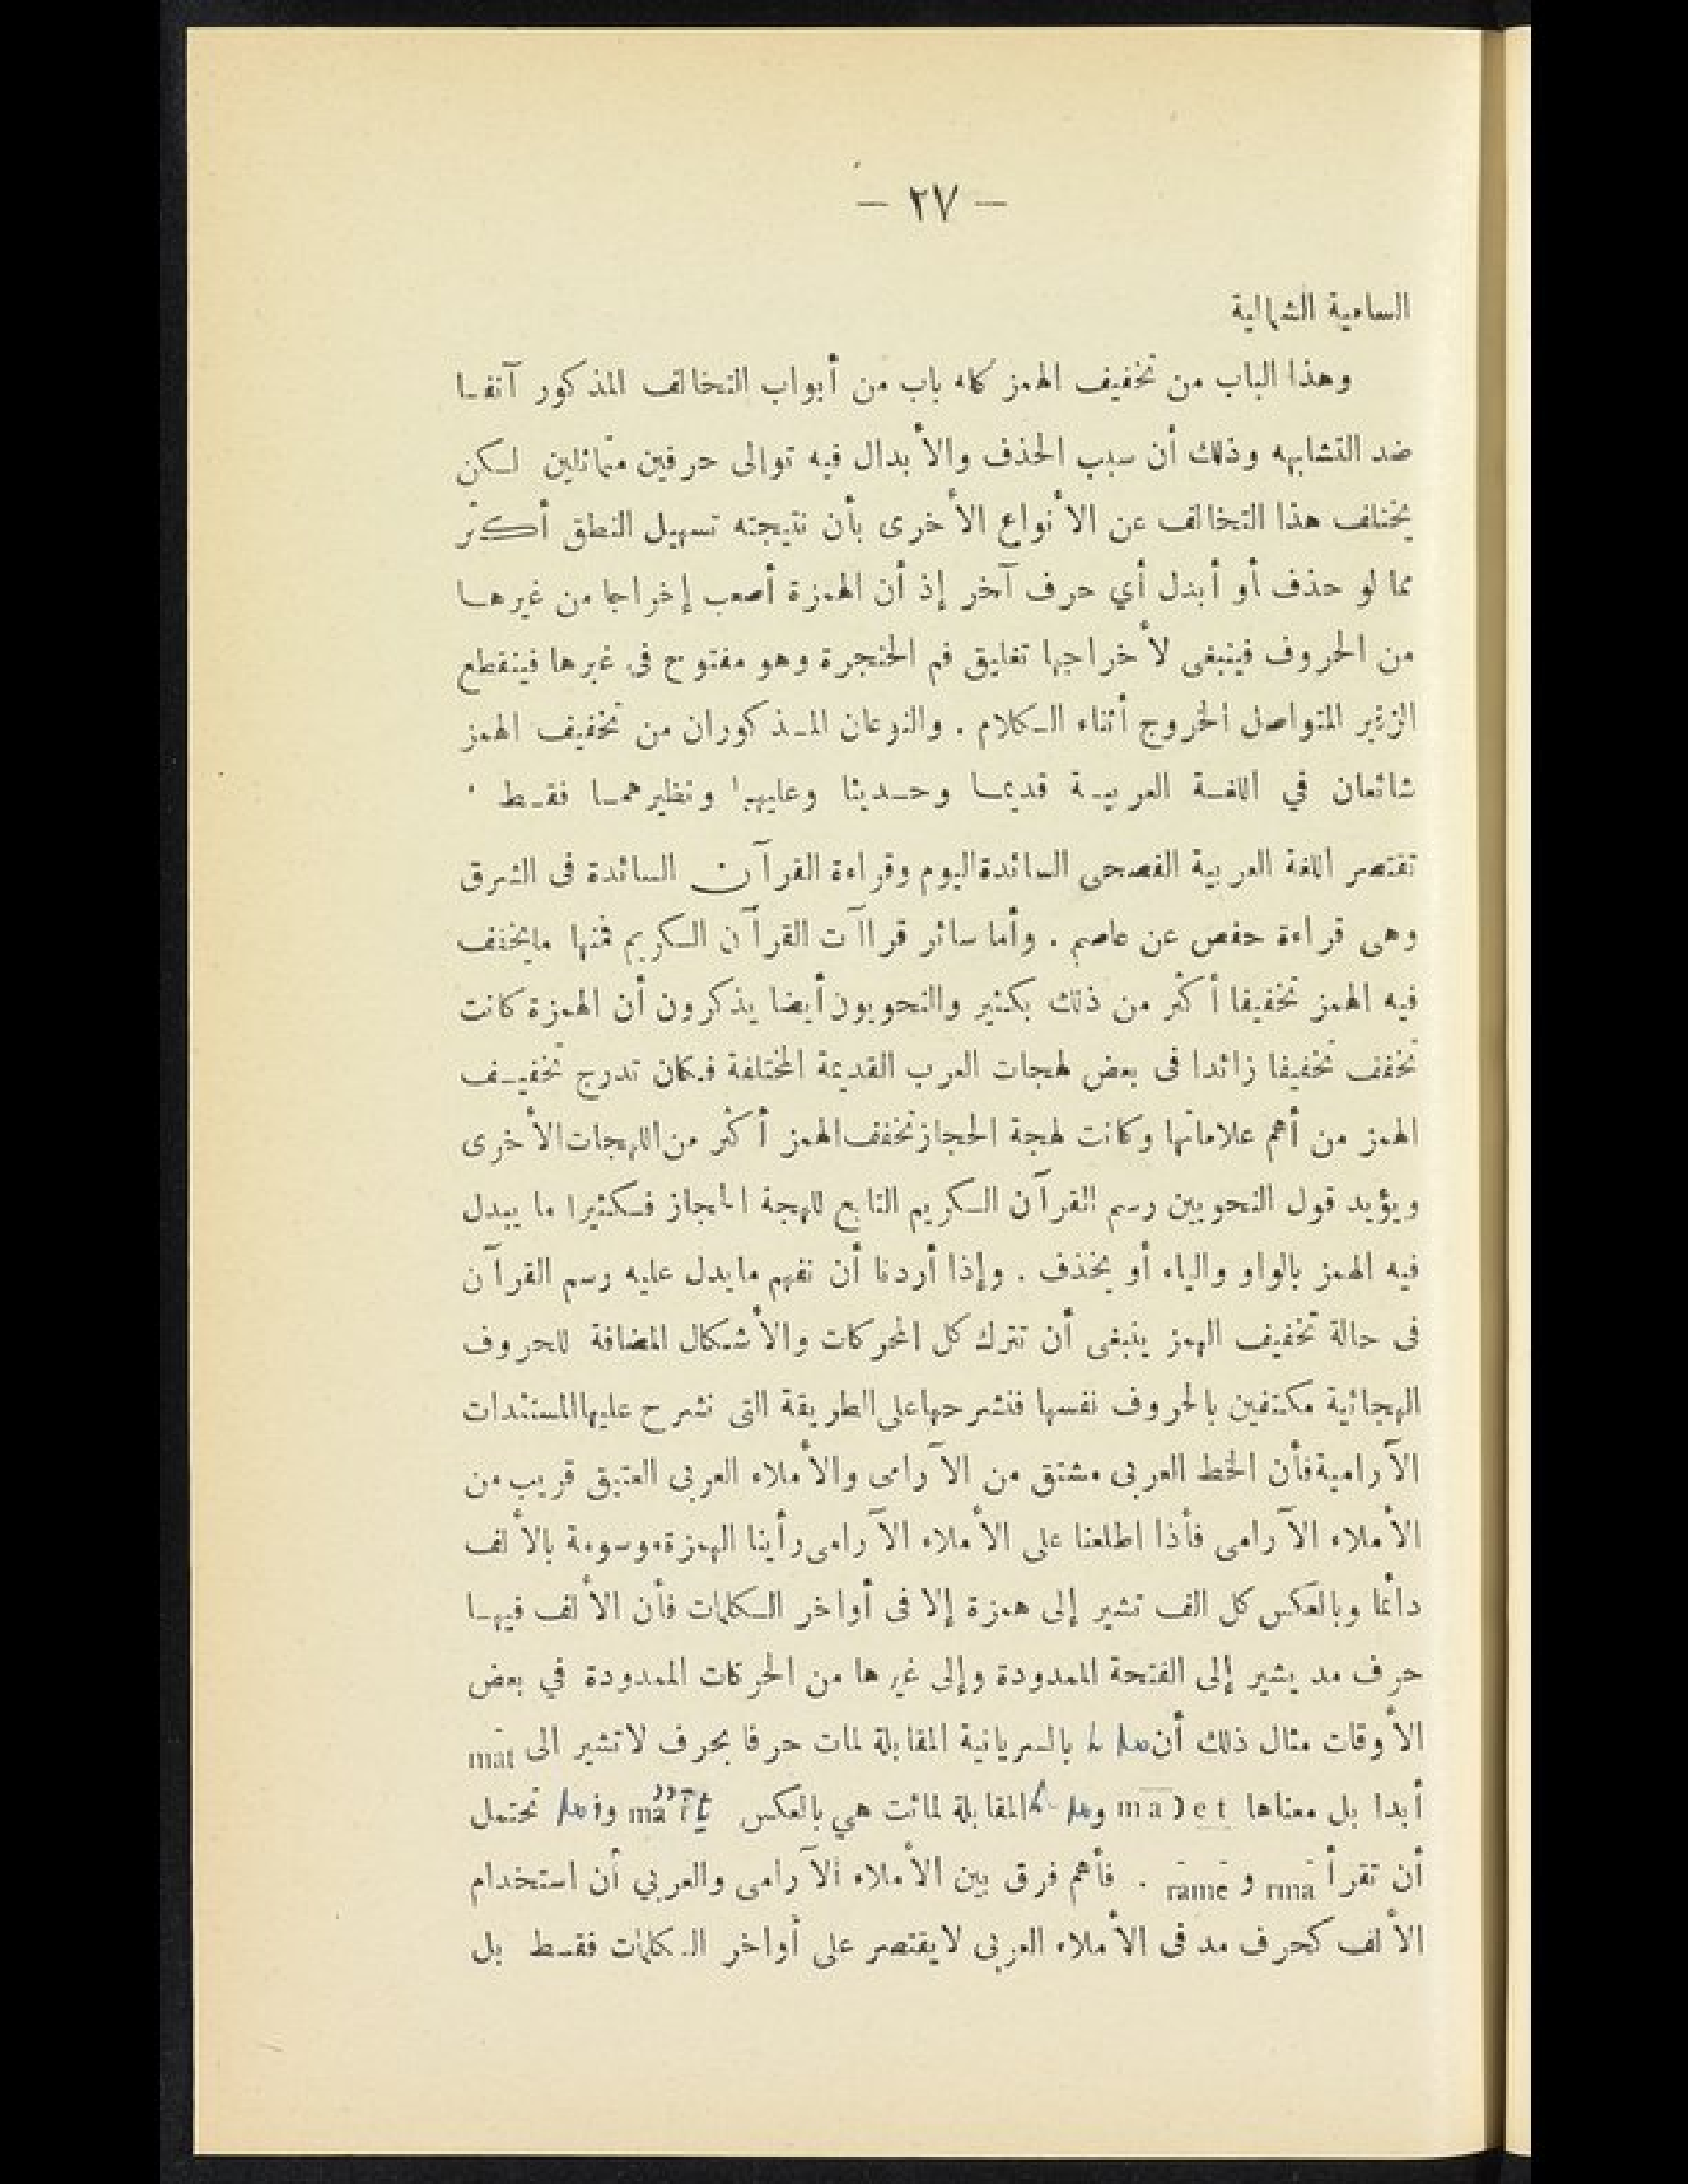 — ٢٧ —
السامية الشمالية
وهذا الباب من تخفيف الهمز كله باب من أبواب التخالف المذكور آنفا
ضد التشابه وذلك أن سبب الحذف والأبدال فيه توالى حرفين متماثلين لكن
يختلف هذا التخالف عن الأنواع الأخرى بأن نتيجته تسهيل النطق أكثر
مما لو حذف أو أبدل أي حرف آخر إذ أن الهمزة أصعب إخراجا من غيرها
من الحروف فينبغى لأخراجها تغليق فم الحنجرة وهو مفتوح فى غيرها فينقطع
الزفير المتواصل الخروج أثناء الكلام . والنوعان المذكوران من تخفيف الهمز
شائعان في اللغة العربية قديما وحديثا وعليهما ونظيرهما فقط
تقتصر اللغة العربية الفصحى السائدة اليوم وقراءة القرآن السائدة فى الشرق
وهى قراءة حفص عن عاصم . وأما سائر قراآت القرآن الكريم فمنها مايخفف
فيه الهمز تخفيفا أكثر من ذلك بكثير والنحويون أيضا يذكرون أن الهمزة كانت
تخفف تخفيفا زائدا فى بعض لهجات العرب القديمة المختلفة فكان تدرج تخفيف
الهمز من أهم علاماتها وكانت لهجة الحجاز تخفف الهمز أكثر من اللهجات الأخرى
ويؤيد قول النحويين رسم القرآن الكريم التابع للهجة الحجاز فكثيرا ما يبدل
فيه الهمز بالواو والياء أو يحذف . وإذا أردنا أن نفهم مايدل عليه رسم القرآن
فى حالة تخفيف الهمز ينبغى أن تترك كل الحركات والأشكال المضافة للحروف
الهجائية مكتفين بالحروف نفسها فنشرحها على الطريقة التى نشرح عليها المستندات
الآرامية فأن الخط العربى مشتق من الآرامى والأملاء العربى العتيق قريب من
الأملاء الآرامى فأذا اطلعنا على الأملاء الآرامى رأينا الهمزة موسومة بالألف
دائما وبالعكس كل الف تشير إلى همزة إلا فى أواخر الكلمات فأن الألف فيها
حرف مد يشير إلى الفتحة الممدودة وإلى غيرها من الحركات الممدودة في بعض
الأوقات مثال ذلك أن بالسريانية المقابلة لمات حرفا بحرف لا تشير الى māt
أبدا بل معناها mā)et و المقابلة لمائت هي بالعكس و تحتمل
أن تقرأ rmā و rāmē . فأهم فرق بين الأملاء الآرامى والعربي أن استخدام
الألف كحرف مد فى الأملاء العربى لايقتصر على أواخر الكلمات فقط بل